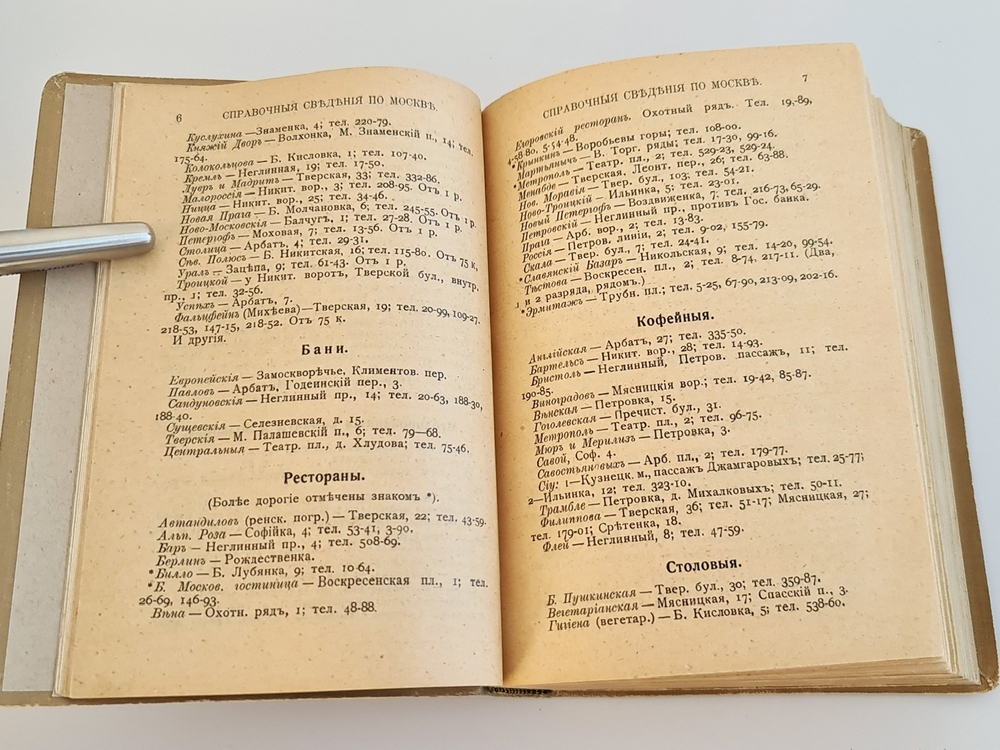 6 СПРАВОЧНЫЯ СВѢДѢНІЯ ПО МОСКВѢ.
Куслухина — Знаменка, 4; тел. 220-79.
Княжій Дворъ — Волхонка, М. Знаменскій п., 14; тел.
175-64.
Колокольцова — Б. Кисловка, 1; тел. 107-40.
Кремль — Неглинная, 19; тел. 17-50.
Лувръ и Мадритъ — Тверская, 33; тел. 332-86.
Малороссія — Никит. вор., 3; тел. 208-95. Отъ 1 р.
Ницца — Никит. вор., 25; тел. 34-46.
Новая Прага — Б. Молчановка, 6; тел. 245-55. Отъ 1 р.
Ново-Московскія — Балчугъ, 1; тел. 27-28. Отъ 1 р.
Петергофъ — Моховая, 7; тел. 13-56. Отъ 1 р.
Столица — Арбатъ, 4; тел. 29-31.
Сѣв. Полюсъ — Б. Никитская, 16; тел. 115-80. Отъ 75 к,
Уралъ — Зацѣпа, 9; тел. 61-43. Отъ 1 р.
Троицкой — у Никит. воротъ, Тверской бул., внутр.
пр., 1; тел. 32-56.
Успѣхъ — Арбатъ, 7.
Фальцфейнъ (Михѣева) — Тверская, 19; тел. 20-99, 109-27.
218-53, 147-15, 218-52. Отъ 75 к.
И другія.
Бани.
Европейскія — Замоскворѣчье, Климентов. пер.
Павловъ — Арбатъ, Годеинскій пер., 3.
Сандуновскія — Неглинный пр., 14; тел. 20-63, 188-30,
188-40.
Сущевскія — Селезневская, д. 15.
Тверскія — М. Палашевскій п., 6; тел. 79—68.
Центральныя — Театр. пл., д. Хлудова; тел. 75-46.
Рестораны.
(Болѣе дорогіе отмѣчены знакомъ *).
Автандиловъ (ренск. погр.) — Тверская, 22; тел. 43-59.
Альп. Роза — Софійка, 4; тел. 53-41, 3-90.
Баръ — Неглинный пр., 4; тел. 508-69.
Берлинъ — Рождественка.
*Билло — Б. Лубянка, 9; тел. 10-64.
*Б. Москов. гостиница — Воскресенская пл., 1; тел.
26-69, 146-93.
Вѣна — Охотн. рядъ, 1; тел. 48-88.
СПРАВОЧНЫЯ СВѢДѢНІЯ ПО МОСКВѢ. 7
Егоровскій ресторанъ. Охотный рядъ. Тел. 19-89,
4-58-80, 5-54-48.
*Крынкинъ — Воробьевы горы; тел. 108-00.
Мартьянычъ — В. Торг. ряды; тел. 17-30, 99-16.
*Метрополь — Театр. пл., 2; тел. 529-23, 529-24.
Менабде — Тверская. Леонт. пер., 26; тел. 63-88.
Нов. Моравія — Твер. бул., 103; тел. 54-21.
Ново-Троицкій — Ильинка, 5; тел. 23-01.
Новый Петергофъ — Воздвиженка, 7; тел. 216-73, 65-29.
Петровскій — Неглинный пр., противъ Гос. банка.
Прага — Арб. вор., 2; тел. 13-83.
Россія — Петров. линіи, 2; тел. 9-02, 155-79.
Скала — Твер. бул., 7; тел. 24-41.
*Славянскій Базаръ — Никольская, 9; тел. 14-20, 99-54.
Тѣстова — Воскресен. пл., 2; тел. 8-74, 217-11. (Два,
1 и 2 разряда, рядомъ.)
*Эрмитажъ — Трубн. пл.; тел. 5-25, 67-90, 213-09, 202-16.
Кофейныя.
Англійская — Арбатъ, 27; тел. 335-50.
Бартельсъ — Никит. вор., 28; тел. 14-93.
Бристоль — Неглинный, Петров. пассажъ, 11; тел.
190-85.
Виноградовъ — Мясницкія вор.; тел. 19-42, 85-87.
Вѣнская — Петровка, 15.
Гоголевская — Пречист. бул., 31.
Метрополь — Театр. пл., 2; тел. 96-75.
Мюръ и Мерилизъ — Петровка, 3.
Савой, Соф. 4.
Савостьяновыхъ — Арб. пл., 2; тел. 179-77.
Сіу: 1—Кузнецк. м., пассажъ Джамгаровыхъ; тел. 25-77;
2—Ильинка, 12; тел. 323-10.
Трамбле — Петровка, д. Михалковыхъ; тел. 50-11.
Филиппова — Тверская, 36; тел. 51-17; Мясницкая, 27;
тел. 179-01; Срѣтенка, 18.
Флей — Неглинный, 8; тел. 47-59.
Столовыя.
Б. Пушкинская — Твер. бул., 30; тел. 359-87.
Вегетаріанская — Мясницкая, 17; Спасскій п., 3.
Гигіена (вегетар.) — Б. Кисловка, 5; тел. 538-60.